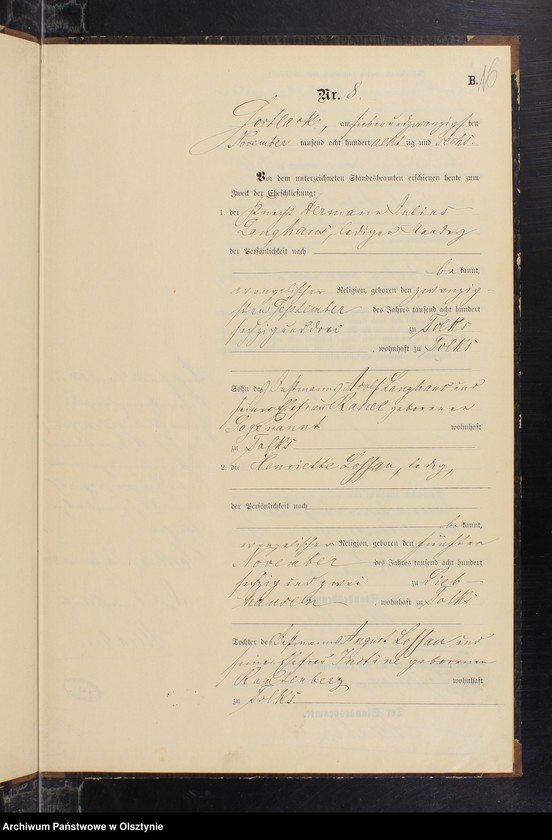 B. 16
Nr. 8.
am siebenundzwanzigsten
November tausend acht hundert achtzig und sechs.
Vor dem unterzeichneten Standesbeamten erschienen heute zum
Zweck der Eheschließung:
1. der Knecht Hermann Julius
Langhans, ledigen Standes,
der Persönlichkeit nach
be kannt,
evangelischer Religion, geboren den zwanzig-
sten September des Jahres tausend acht hundert
sechzig und drei zu Tolks
, wohnhaft zu Tolks
Sohn des Instmanns Adolf Langhans und
seiner Ehefrau Rahel geborenen
Sogenannt wohnhaft
zu Tolks
2. die Henriette Lossau, ledig,
der Persönlichkeit nach
be kannt,
evangelischer Religion, geboren den fünften
November des Jahres tausend acht hundert
sechzig und zwei zu Lieb-
hausen , wohnhaft zu Tolks
Tochter des Instmanns August Lossau und
seiner Ehefrau Justine geborenen
Rautenberg wohnhaft
zu Tolks
Archiwum Państwowe w Olsztynie